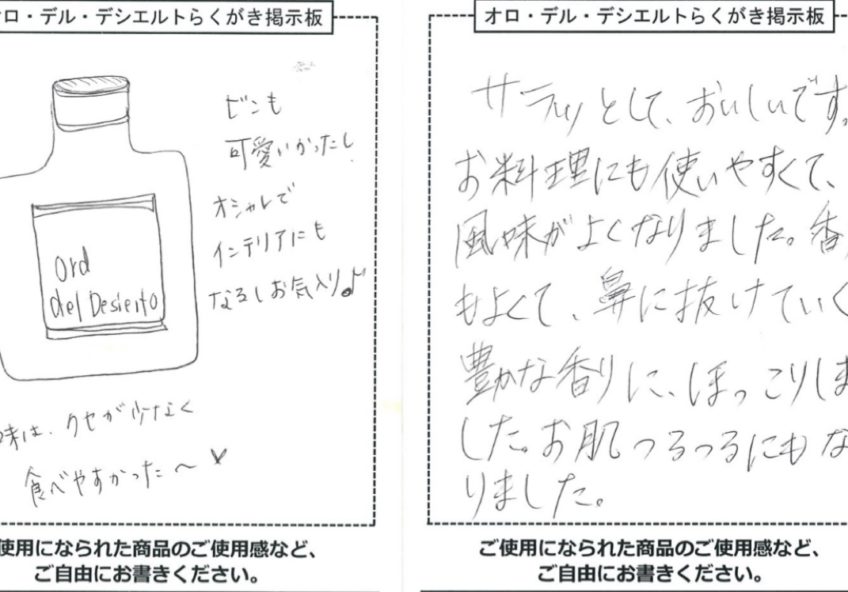 ロ・デル・デシエルトらくがき掲示板
ビンも
可愛いかったし
オシャレで
インテリアにも
なるしお気入り♪
Oro
del Desierto
味は、クセが少なく
食べやすかった〜
使用になられた商品のご使用感など、
ご自由にお書きください。
オロ・デル・デシエルトらくがき掲示板
サラッとして、おいしいです。
お料理にも使いやすくて、
風味がよくなりました。香
もよくて、鼻に抜けていく
豊かな香りに、ほっこりしま
した。お肌つるつるにもな
りました。
ご使用になられた商品のご使用感など、
ご自由にお書きください。